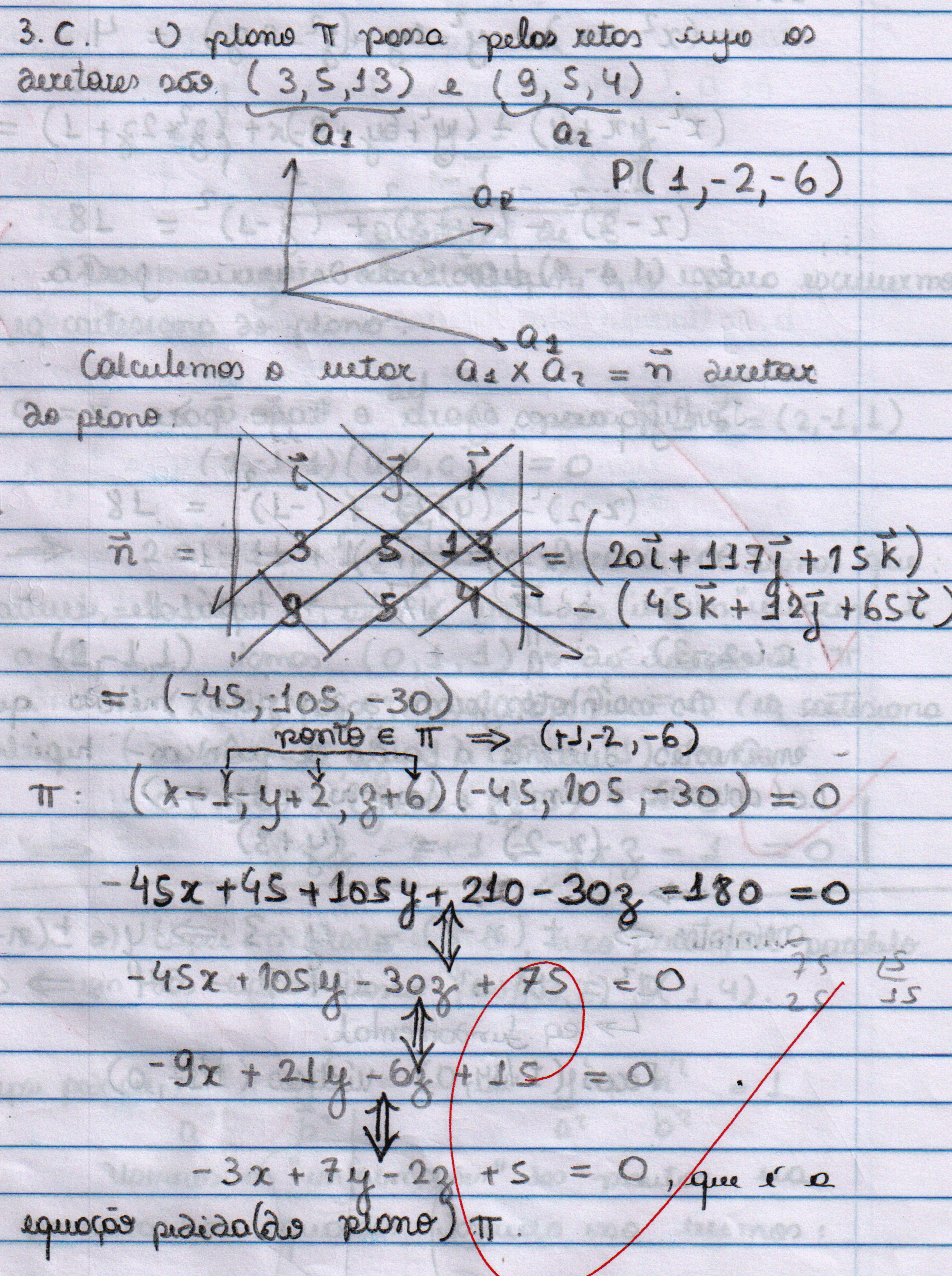 3.C. O plano π passa pelas retas cujo os
diretores são (3,5,13) e (9,5,4).
a1 a2
P(1,-2,-6)
a2
a1
Calculemos o vetor a1 x a2 = n⃗ diretor
do plano:
i⃗ j⃗ k⃗
n⃗ = 3 5 13 = (20i⃗ + 117j⃗ + 15k⃗)
9 5 4 - (45k⃗ + 12j⃗ + 65i⃗)
= (-45, 105, -30)
ponto ∈ π ⇒ (+1,-2,-6)
π: (x-1, y+2, z+6)(-45, 105, -30) = 0
-45x + 45 + 105y + 210 - 30z - 180 = 0
⇕
-45x + 105y - 30z + 75 = 0
75 15
25 15
⇕
-9x + 21y - 6z + 15 = 0
⇕
-3x + 7y - 2z + 5 = 0, que é a
equação pedida (do plano) π.